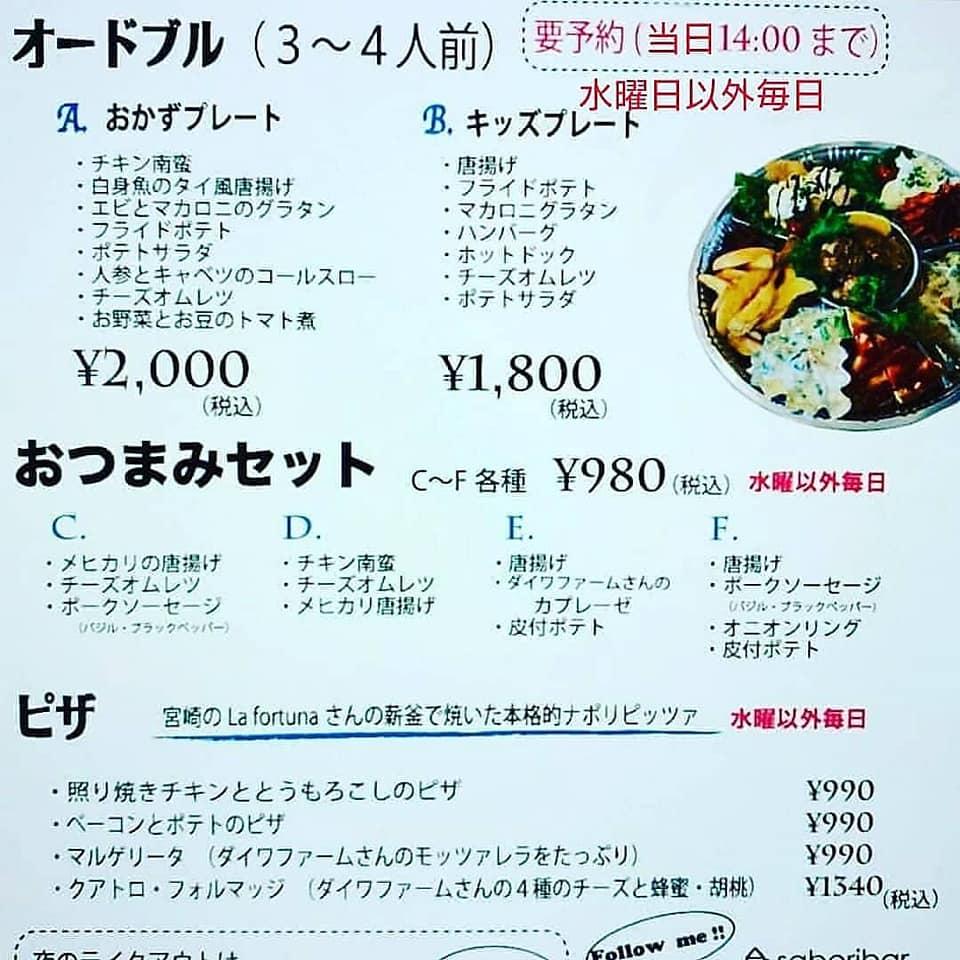 オードブル（３〜４人前）
要予約（当日14:00 まで）
水曜日以外毎日
A. おかずプレート
・チキン南蛮
・白身魚のタイ風唐揚げ
・エビとマカロニのグラタン
・フライドポテト
・ポテトサラダ
・人参とキャベツのコールスロー
・チーズオムレツ
・お野菜とお豆のトマト煮
¥2,000
（税込）
B. キッズプレート
・唐揚げ
・フライドポテト
・マカロニグラタン
・ハンバーグ
・ホットドック
・チーズオムレツ
・ポテトサラダ
¥1,800
（税込）
おつまみセット C〜F 各種 ¥980（税込） 水曜以外毎日
C.
・メヒカリの唐揚げ
・チーズオムレツ
・ポークソーセージ
（バジル・ブラックペッパー）
D.
・チキン南蛮
・チーズオムレツ
・メヒカリ唐揚げ
E.
・唐揚げ
・ダイワファームさんの
カプレーゼ
・皮付ポテト
F.
・唐揚げ
・ポークソーセージ
（バジル・ブラックペッパー）
・オニオンリング
・皮付ポテト
ピザ 宮崎の La fortuna さんの薪釜で焼いた本格的ナポリピッツァ 水曜以外毎日
・照り焼きチキンととうもろこしのピザ ¥990
・ベーコンとポテトのピザ ¥990
・マルゲリータ （ダイワファームさんのモッツァレラをたっぷり） ¥990
・クアトロ・フォルマッジ （ダイワファームさんの４種のチーズと蜂蜜・胡桃） ¥1340（税込）
夜のテイクアウトは
Follow me !!
saboribar